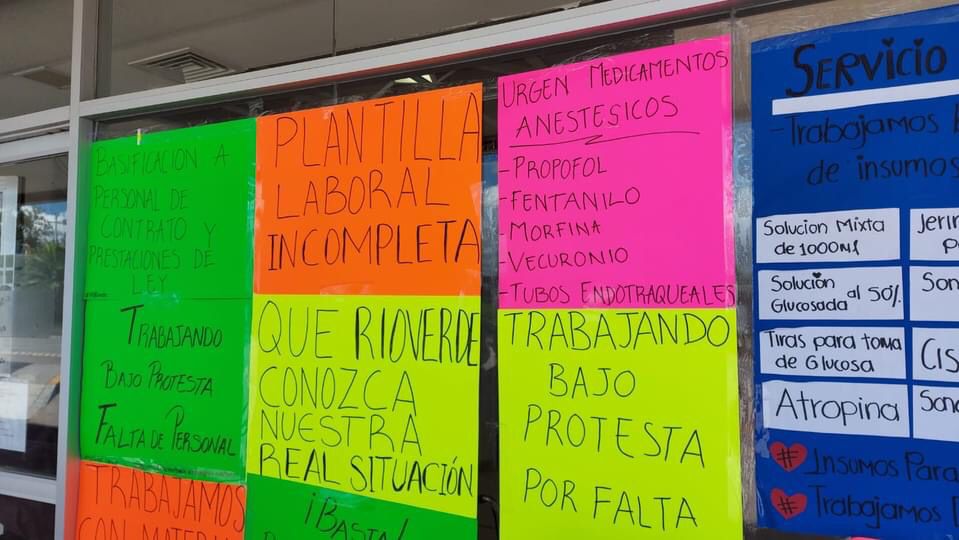 BASIFICACION A
PERSONAL DE
CONTRATO Y
PRESTACIONES DE
LEY
TRABAJANDO
BAJO PROTESTA
FALTA DE PERSONAL
TRABAJAMOS
CON
PLANTILLA
LABORAL
INCOMPLETA
QUE RIOVERDE
CONOZCA
NUESTRA
REAL SITUACIÓN
¡BASTA!
URGEN MEDICAMENTOS
ANESTESICOS
-PROPOFOL
-FENTANILO
-MORFINA
-VECURONIO
-TUBOS ENDOTRAQUEALES
TRABAJANDO
BAJO
PROTESTA
POR FALTA
SERVICIO
-Trabajamos
de insumos
Solucion Mixta
de 1000ml
Solución
Glucosada al 50%.
Tiras para toma
de Glucosa
Atropina
# Insumos Para
# Trabajamos